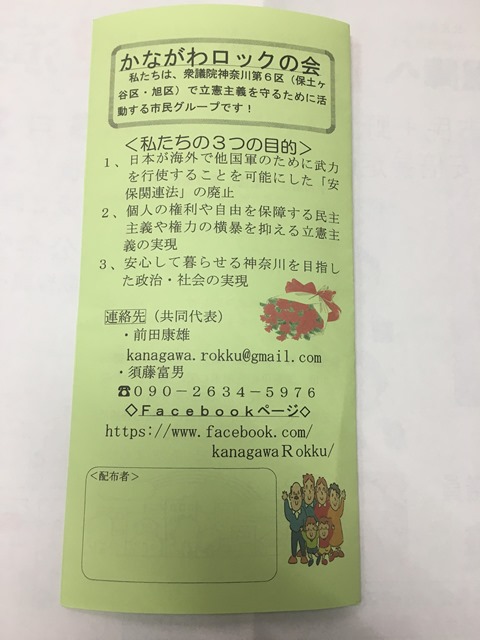 かながわロックの会
私たちは、衆議院神奈川第６区（保土ヶ
谷区・旭区）で立憲主義を守るために活
動する市民グループです！
＜私たちの３つの目的＞
１、日本が海外で他国軍のために武力
を行使することを可能にした「安
保関連法」の廃止
２、個人の権利や自由を保障する民主
主義や権力の横暴を抑える立憲主
義の実現
３、安心して暮らせる神奈川を目指し
た政治・社会の実現
連絡先（共同代表）
・前田康雄
kanagawa.rokku@gmail.com
・須藤富男
☎０９０－２６３４－５９７６
◇Ｆａｃｅｂｏｏｋページ◇
https://www.facebook.com/
kanagawaＲokku/
＜配布者＞